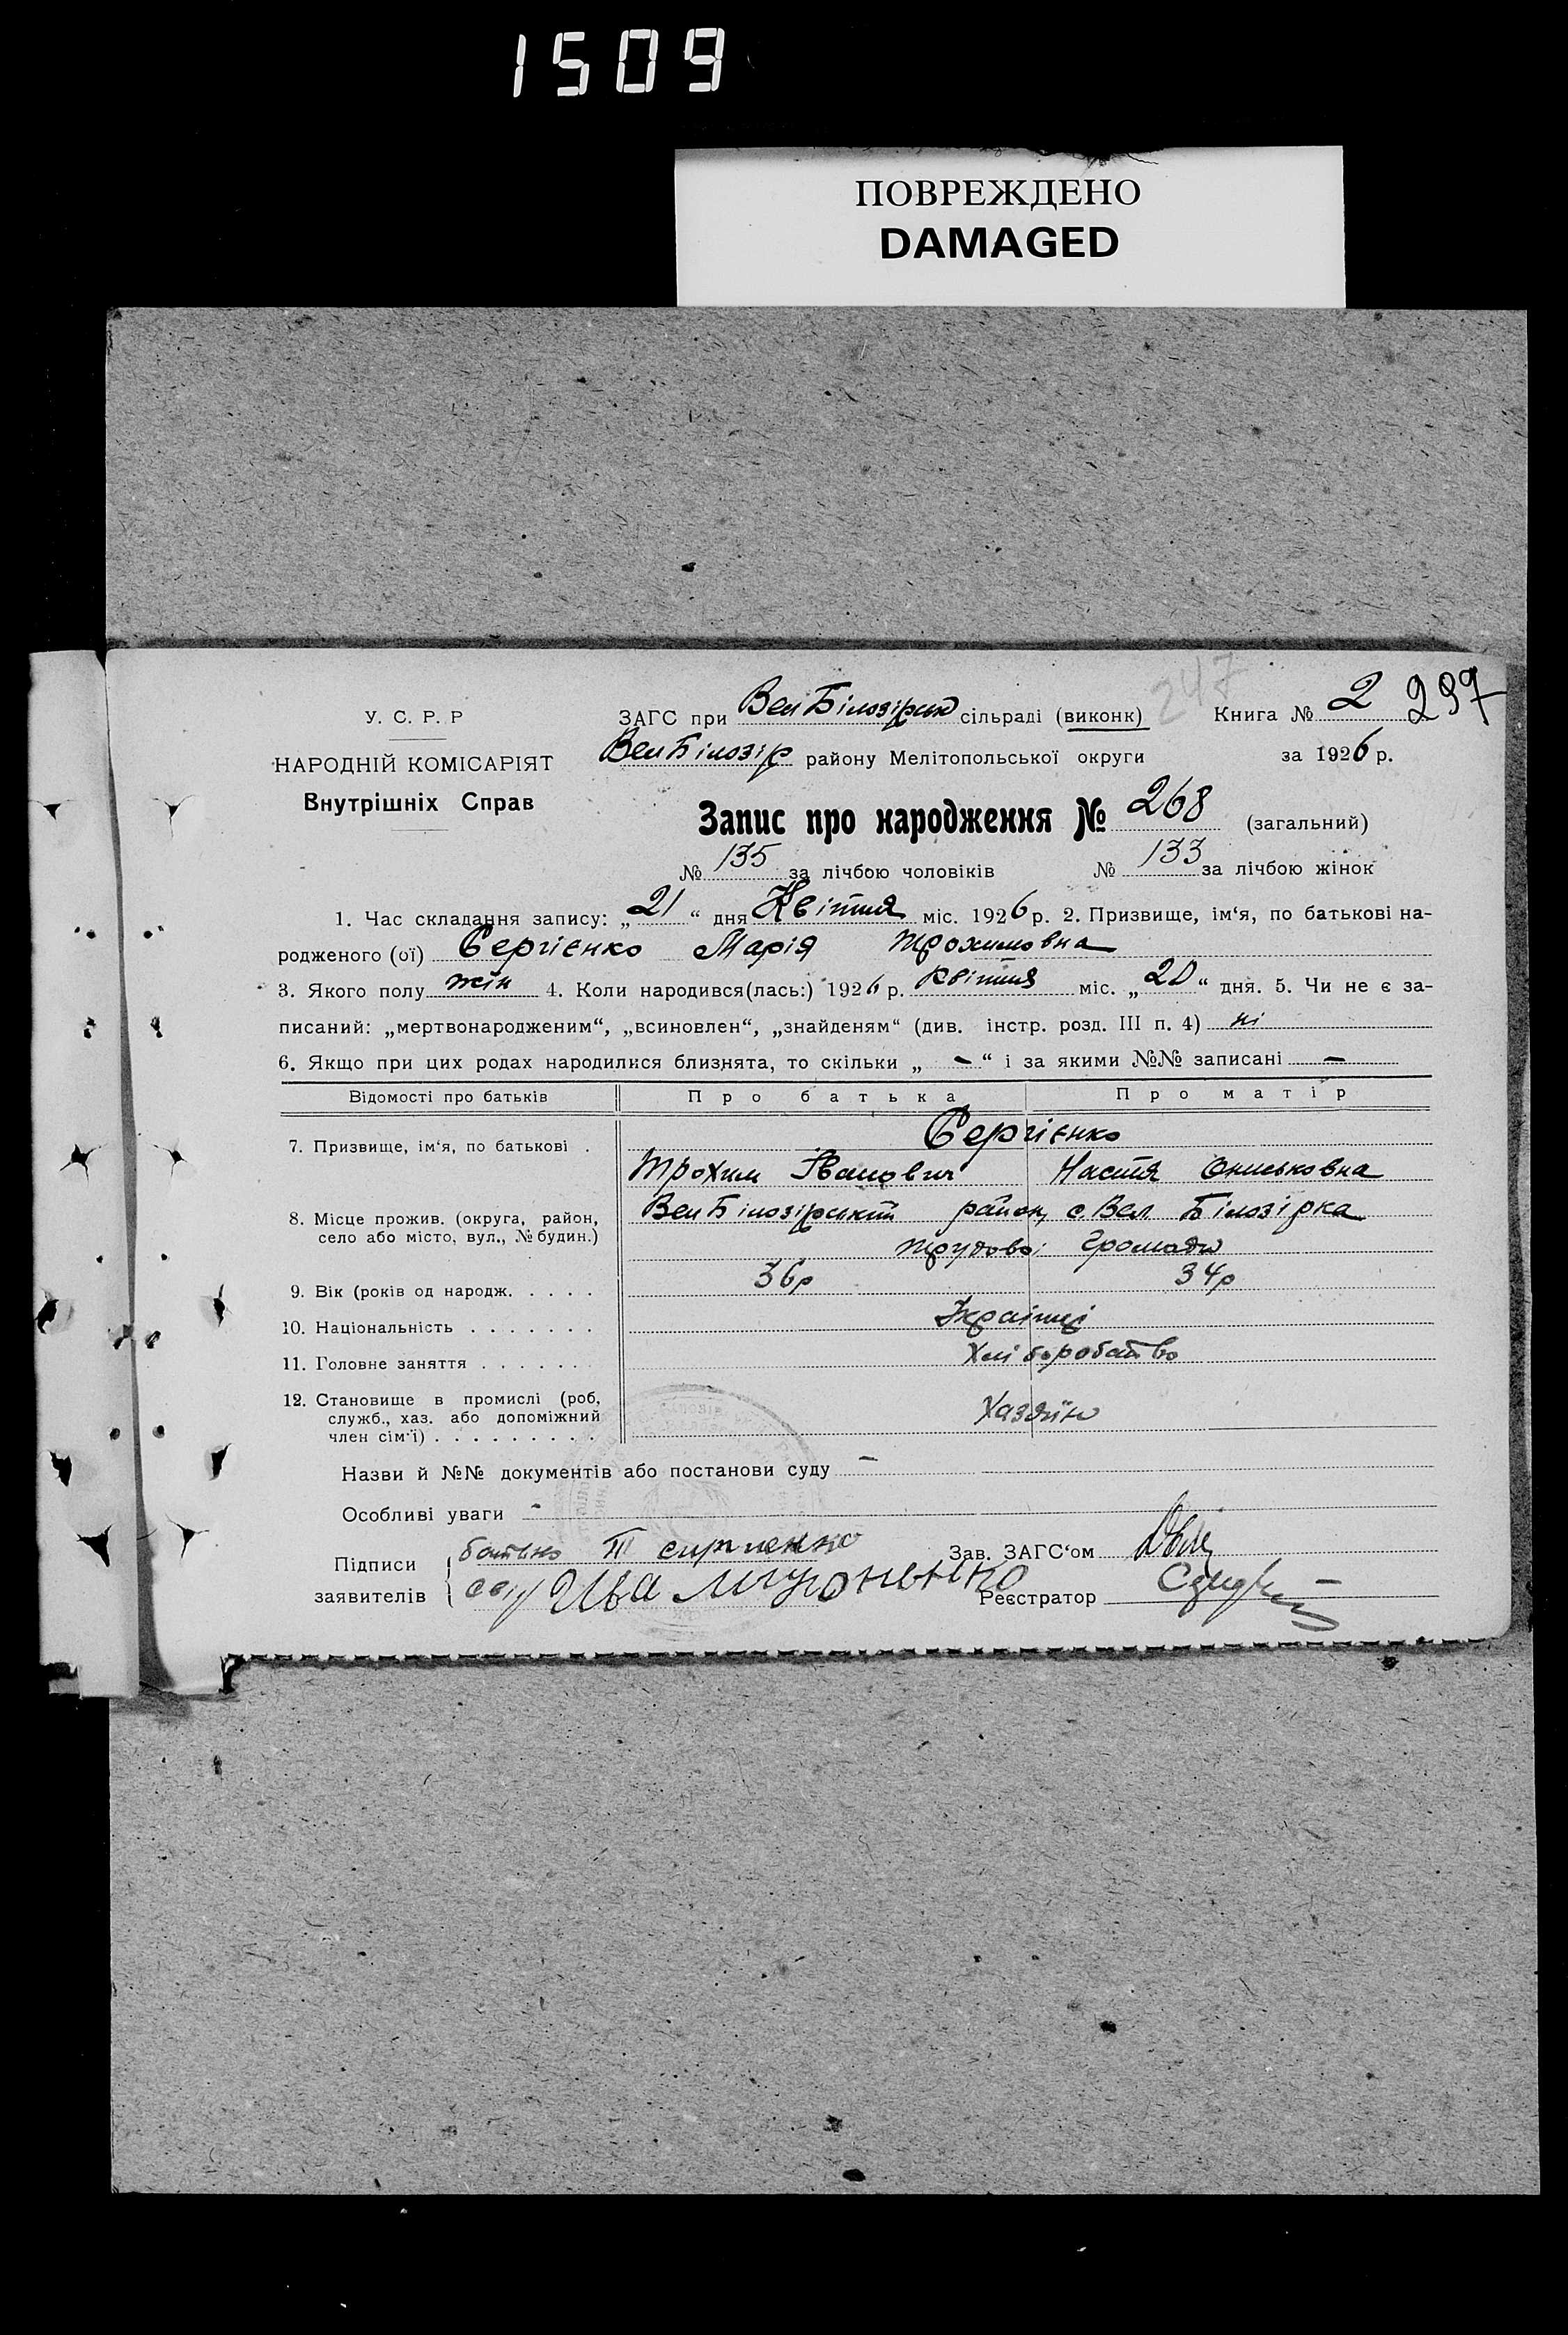 1509
ПОВРЕЖДЕНО
DAMAGED
247
У. С. Р. Р
ЗАГС при Вел Білозірськ сільраді (виконк) Книга № 2 297
НАРОДНІЙ КОМІСАРІЯТ
Вел Білозір району Мелітопольської округи за 1926 р.
Внутрішніх Справ
Запис про народження № 268 (загальний)
№ 135 за лічбою чоловіків № 133 за лічбою жінок
1. Час складання запису: „21“ дня Квітня міс. 1926 р. 2. Призвище, ім‘я, по батькові на-
родженого (ої) Сергієнко Марія Трохимовна
3. Якого полу жін 4. Коли народився(лась:) 1926 р. Квітня міс. „20“ дня. 5. Чи не є за-
писаний: „мертвонародженим“, „всиновлен“, „знайденям“ (див. інстр. розд. III п. 4) ні
6. Якщо при цих родах народилися близнята, то скільки „ - “ і за якими №№ записані -
Відомості про батьків Про батька Про матір
7. Призвище, ім‘я, по батькові . Сергієнко
Трохим Іванович Настя Ониськовна
8. Місце прожив. (округа, район, Вел Білозірський район, с. Вел Білозірка
село або місто, вул., № будин.) Трудової Громади
9. Вік (років од народж. . . . . 36р 34р
10. Національність . . . . . . . Українці
11. Головне заняття . . . . . . . Хліборобство
12. Становище в промислі (роб,
служб., хаз. або допоміжний Хазяїн
член сім‘ї) . . . . . . . . .
Назви й №№ документів або постанови суду -
Особливі уваги -
Підписи батько Т сиргиенко Зав. ЗАГС‘ом
заявителів Реєстратор